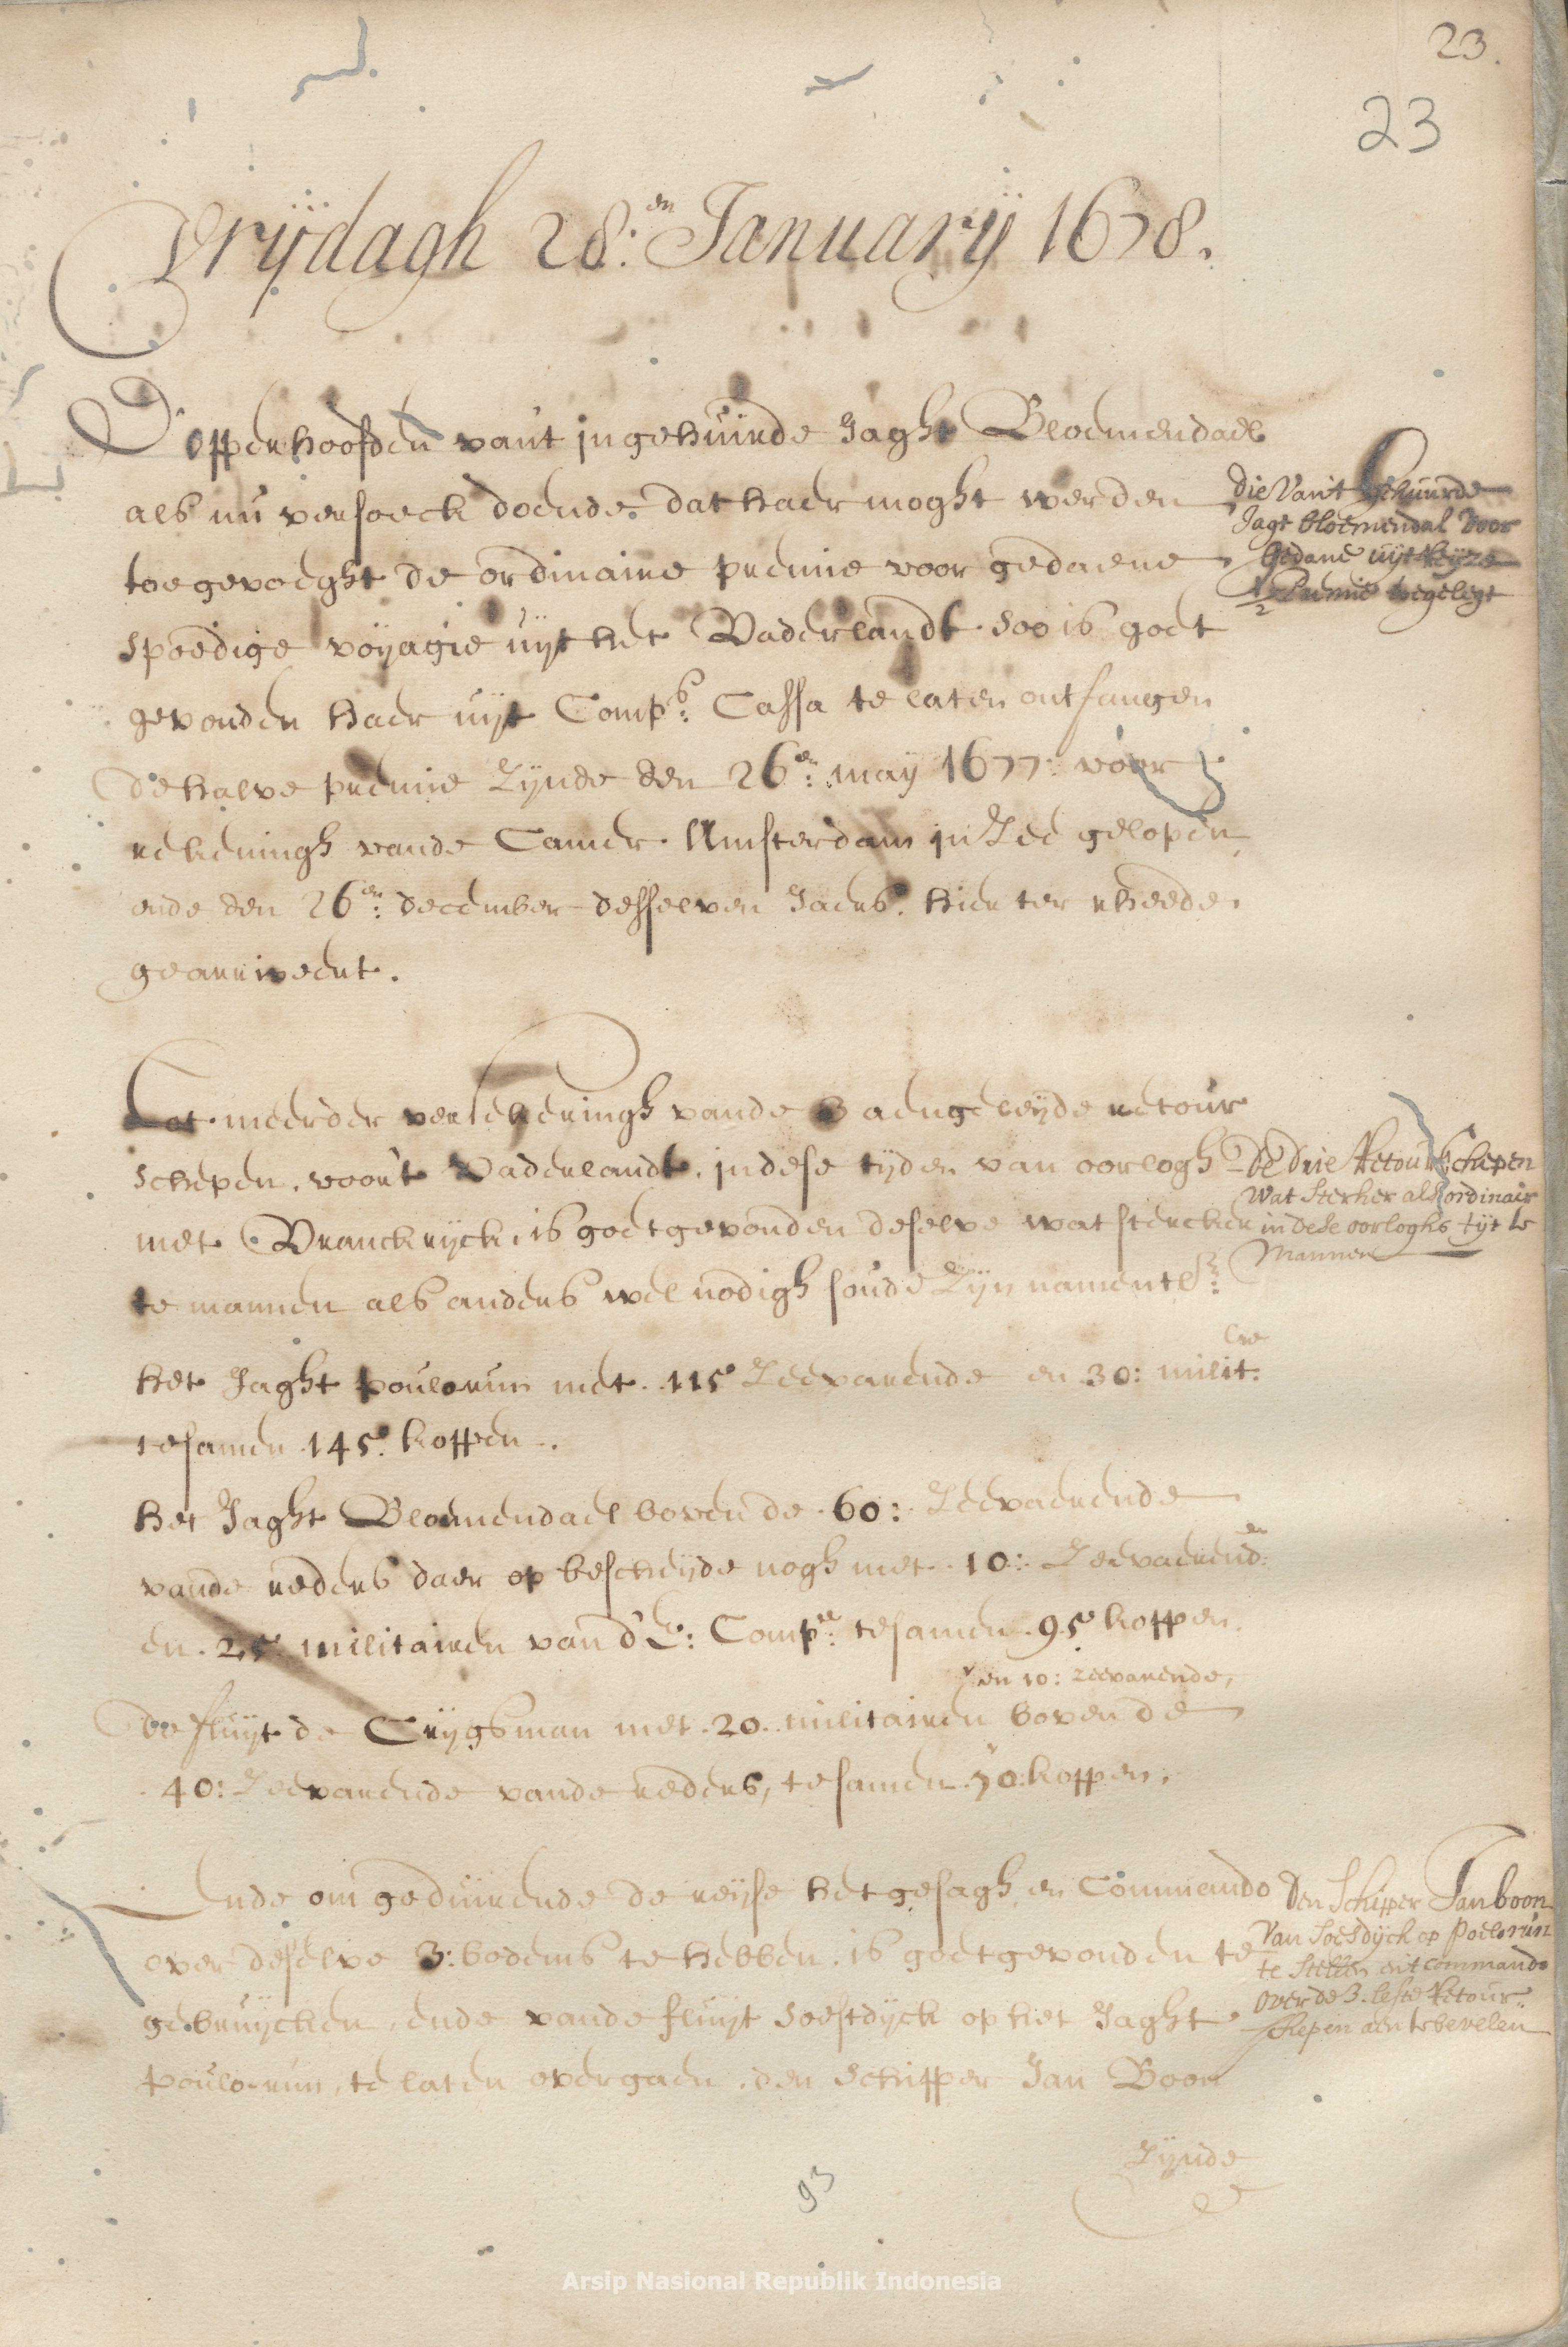 23.
23
Vrijdagh 28:en January 1678.
D' opperhoofden vant ingehuirde Jaght Bloemendael
als nu versoeck doende dat haer moght werden
toegevoeght de ordinaire premie voor gedaene
spoedige voyagie uijt het Vaderlandt soo is goet
gevonden haer uijt Comps: Cassa te laten ontfangen
de halve premie zijnde den 26en: may 1677: voor
rekeningh vande Camer Amsterdam in Zee gelopen,
ende den 26en: december desselven Jaers. hier ter rheede
gearriveert.
die Vant gehuurde
Jagt bloemendal voor
gedane uijt Reijze
1/2 Premie toegelegt
Tot meerder versekeringh vande 3 aengeleijde retour
schepen, voor't Vaderlandt, in dese tijden van oorlogh
met Vranckrijck, is goetgevonden deselve wat stercker
te mannen als anders wel nodigh soude zijn namentl:
De drie Retour Schepen
wat Sterker als ordinair
in dese oorloghs tijt te
Mannen
het Jaght Poulorun met 115 Zeevarende en 30: milit:re
tesamen 145. koppen.
het Jaght Bloemendael boven de 60: Zeevaerende
vande reders daer op bescheijde nogh met 10: Zeevaerend:en
en 25 militairen van d'E: Compe: tesamen 95 koppen.
en 10: zeevarende,
de fluijt de Crijgsman met 20 militairen boven de
40: Zeevarende vande reders, tesamen 70: koppen.
Ende om geduirende de reijse het gesagh en Commando
over deselve 3: bodems te hebben, is goetgevonden te
gebruijcken, ende vande fluijt Soestdijck op het Jaght
Poulo-run, te laten overgaen, den schipper Jan Boon
Den Schipper Jan boon
Van Soesdijck op Poelorun
te Stellen en't commando
over de 3. leste Retour
schepen aen te bevelen
zijnde
93
Arsip Nasional Republik Indonesia